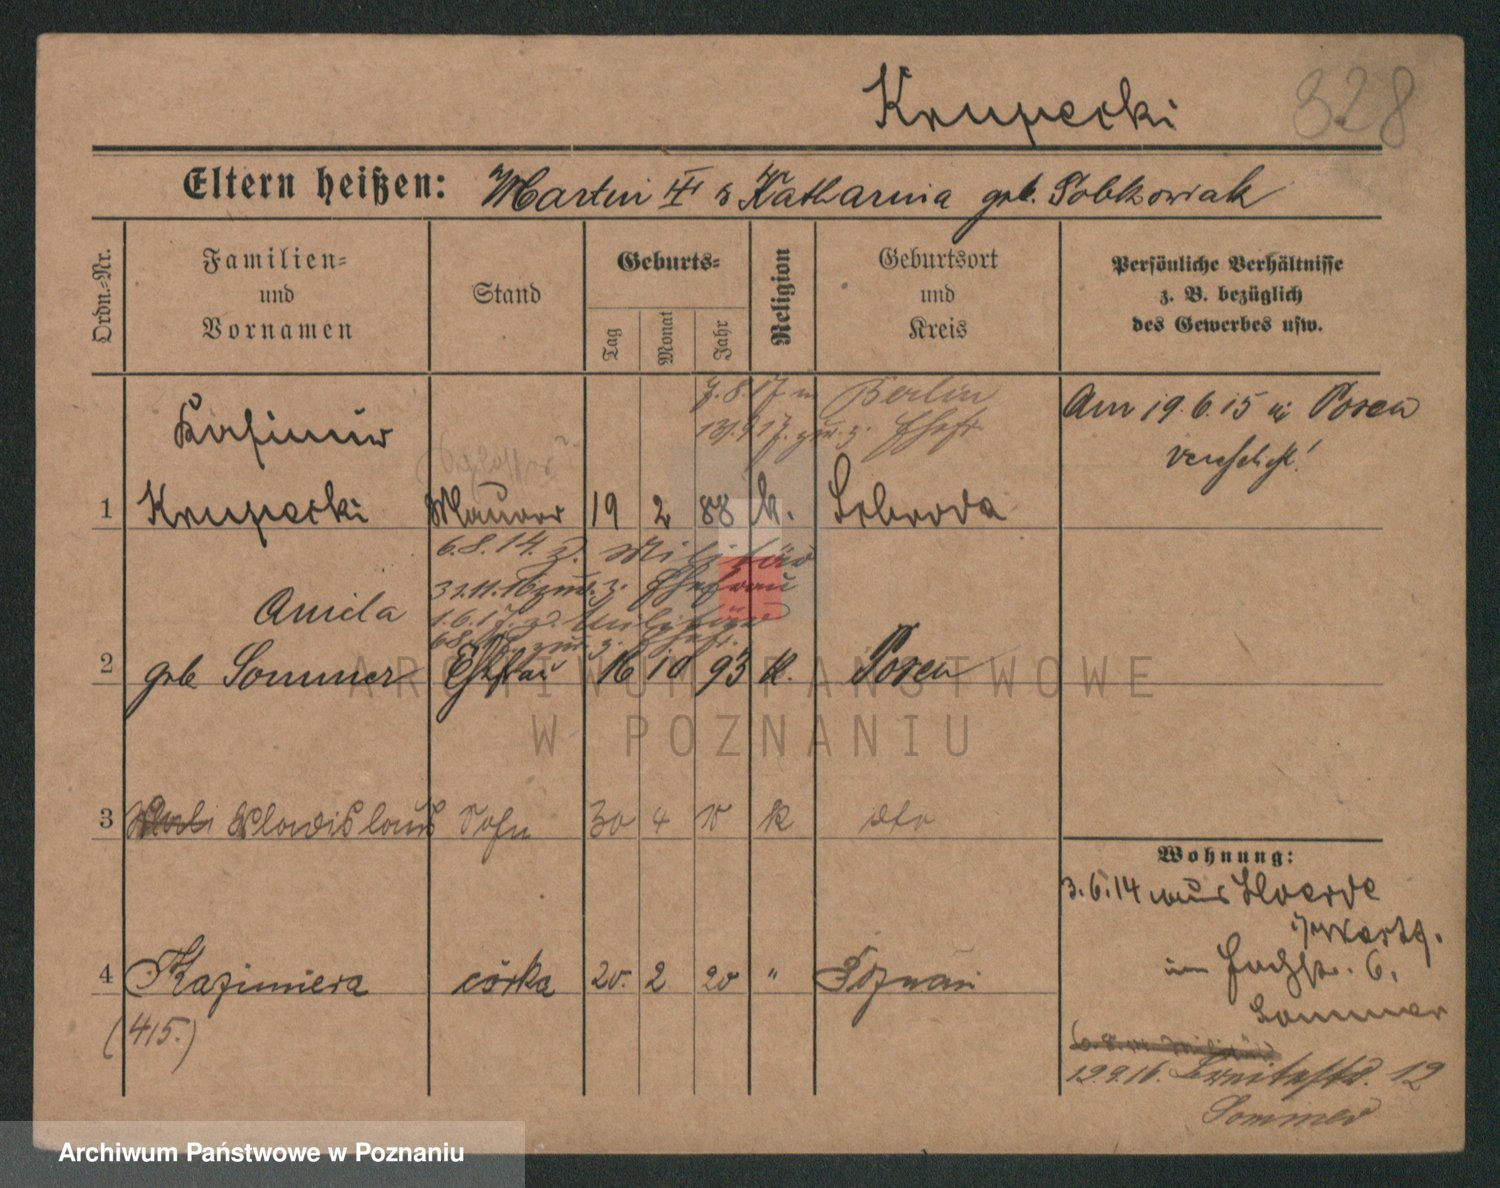 Krupecki 328
Eltern heißen: Martin III & Katharina geb. Sobkowiak
Ordn.-Nr.
Familien-
und
Vornamen
Stand
Geburts-
Tag
Monat
Jahr
Religion
Geburtsort
und
Kreis
Persönliche Verhältnisse
z. B. bezüglich
des Gewerbes usw.
7.8.17 Berlin
zur. z.
Am 19.6.15 in Posen
verehelicht!
Kasimir
1 Krupecki Maurer 19 2 88 k. Schroda
6.8.14. z. Militär
zur. z. Ehefrau
1.6.17. z. Militär
zur. z.
Aniela
2 geb Sommer Ehefrau 16 10 93 k. Posen
3 Wladislaus Sohn 30 4 15 k dto
4 Kazimiera córka 20. 2 20 " Poznań
(415.)
Wohnung:
3.6.14 aus Hoerde
i/Westf.
6.
Sommer
12.9.16. Breitestr. 12
Sommer
ARCHIWUM PAŃSTWOWE
W POZNANIU
Archiwum Państwowe w Poznaniu